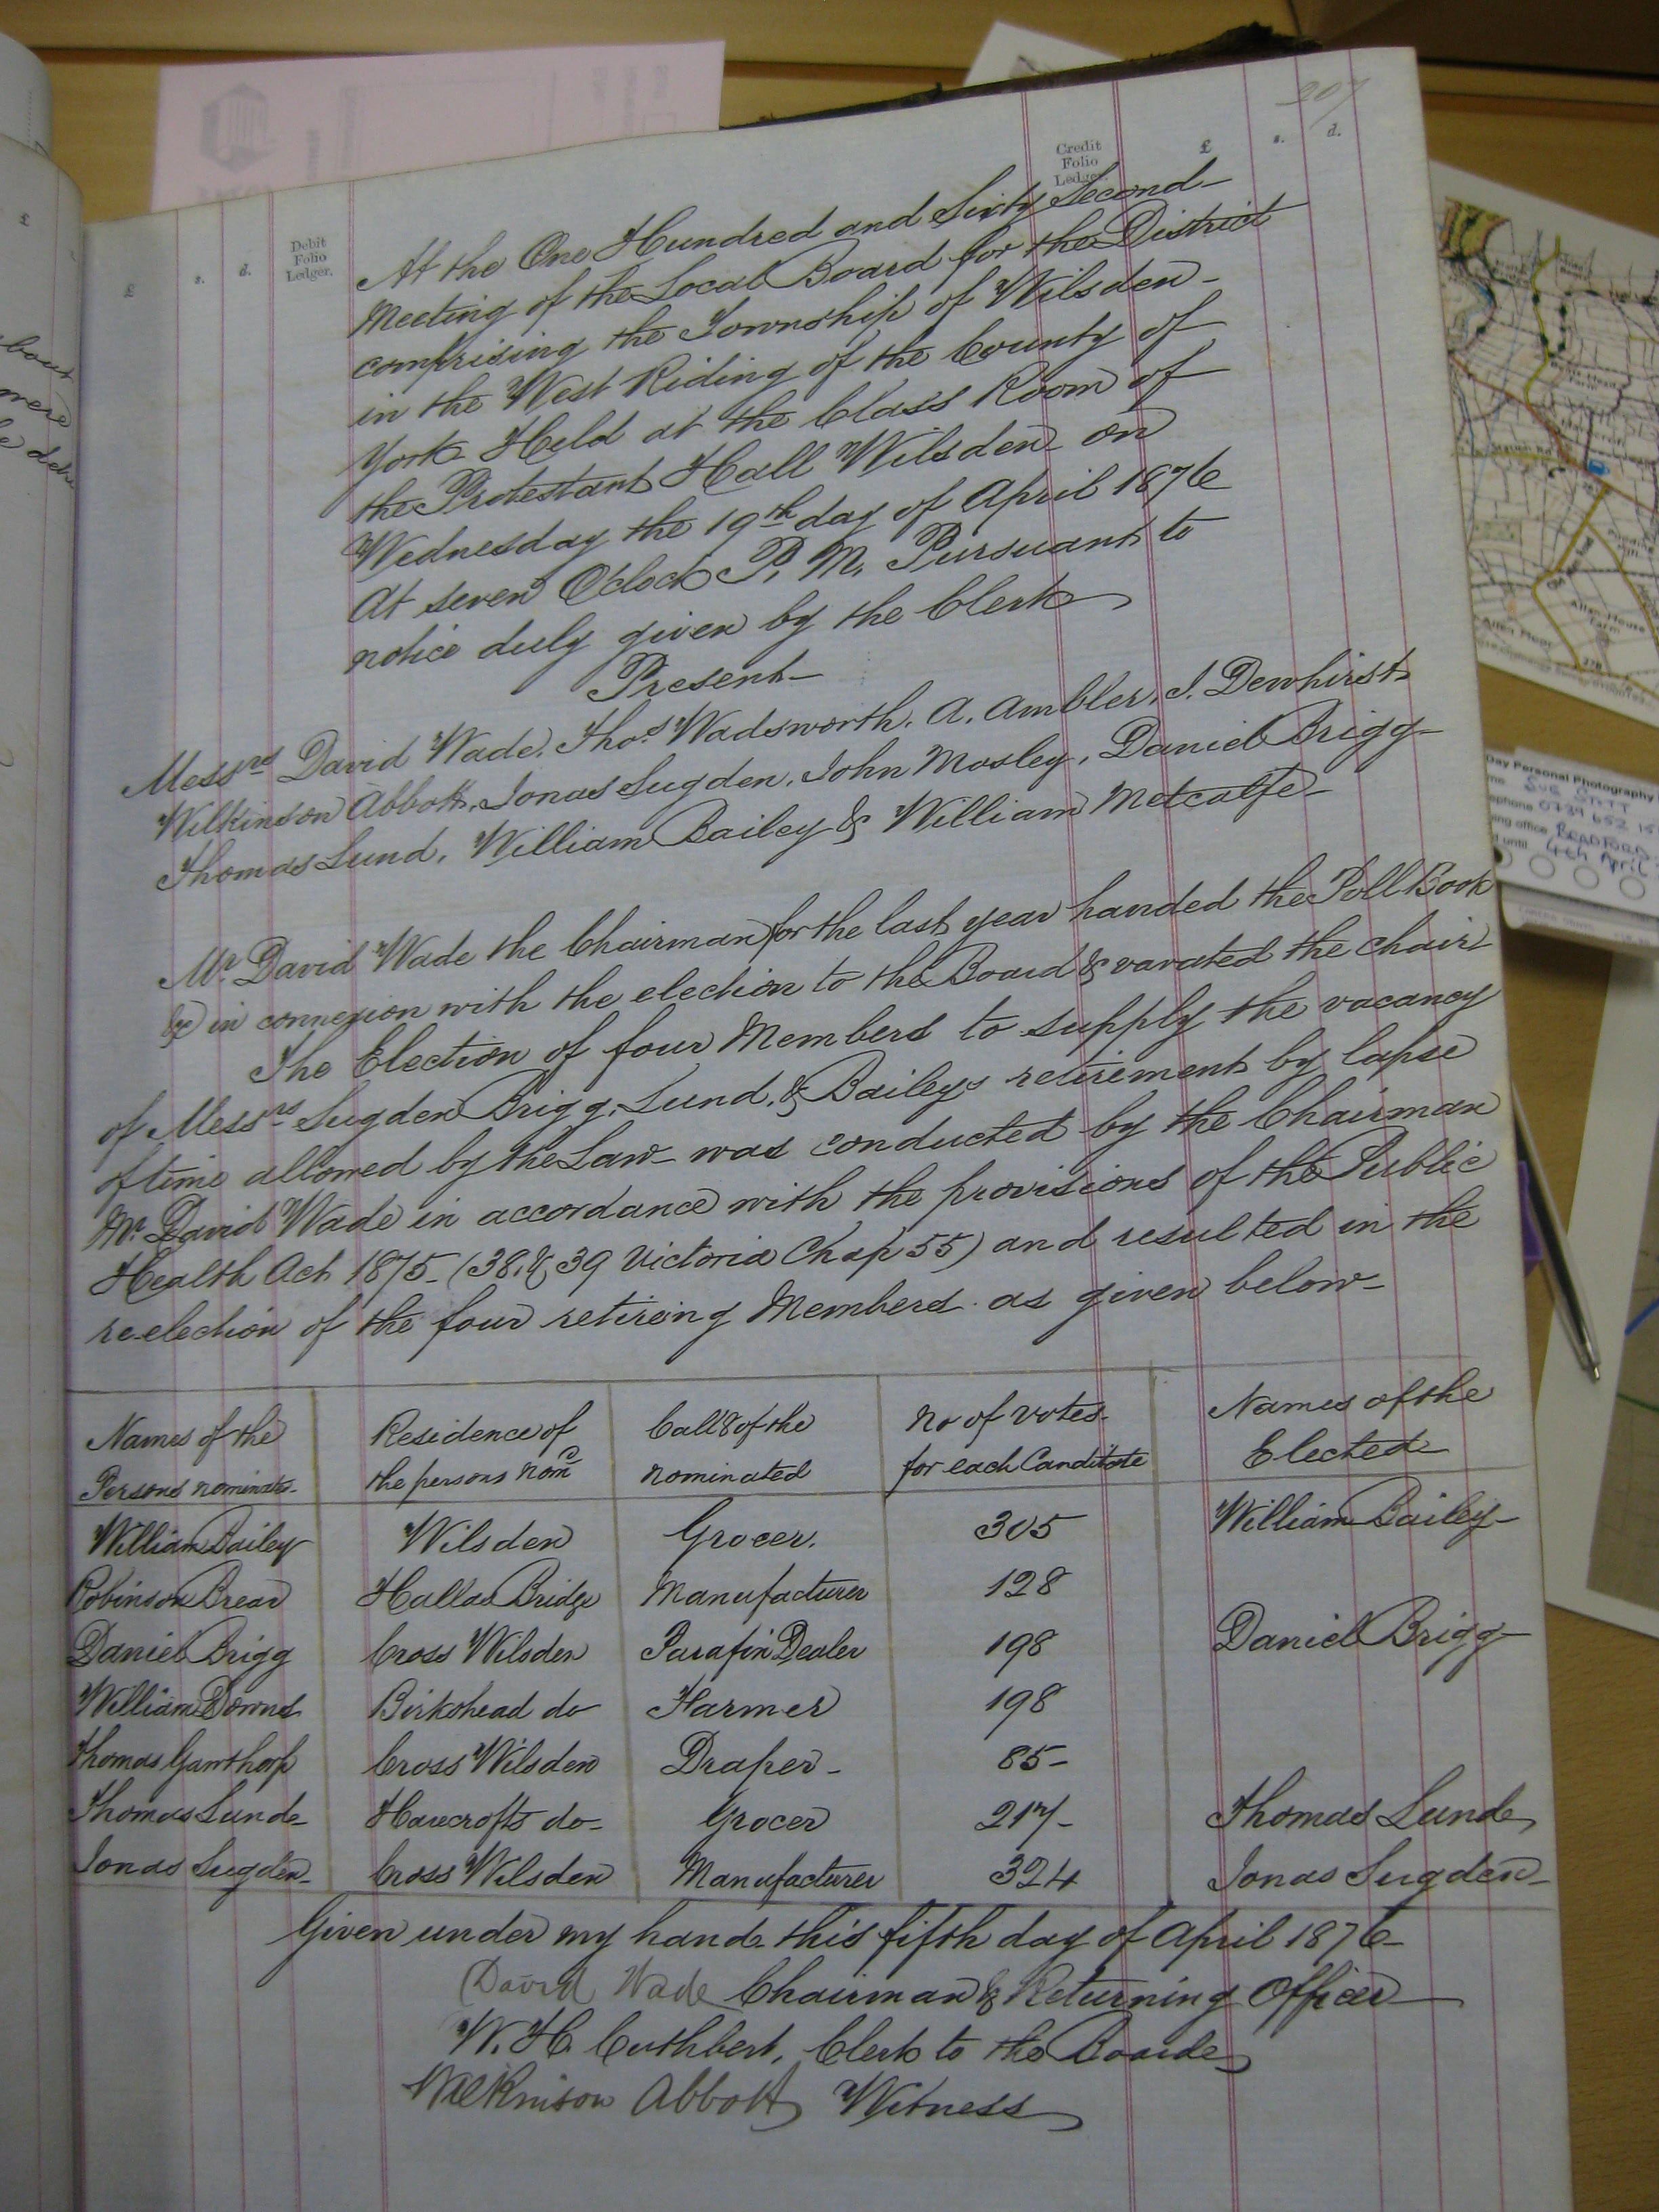 207
Credit
Folio
Ledger.
£
s.
d.
Debit
Folio
Ledger.
£
s.
d.
At the One Hundred and Sixty Second
Meeting of the Local Board for the District
comprising the Township of Wilsden
in the West Riding of the County of
York Held at the Class Room of
the Protestant Hall Wilsden on
Wednesday the 19th day of April 1876
At seven O'Clock P. M. Pursuant to
notice duly given by the Clerk
Present
Messrs David Wade, Thos. Wadsworth, A. Ambler, J. Dewhirst
Wilkinson Abbott, Jonas Sugden, John Mosley, Daniel Brigg
Thomas Lund, William Bailey & William Metcalfe
Mr. David Wade the Chairman for the last year handed the Poll Book
&c in connexion with the election to the Board & vavated the chair
The Election of four Members to supply the vacancy
of Messrs Sugden Brigg, Lund, & Baileys retirement by lapse
of time allowed by the Law was conducted by the Chairman
Mr. David Wade in accordance with the provisions of the Public
Health Act 1875 (38, & 39 Victoria Chap 55) and resulted in the
re-election of the four retiring Members as given below
Names of the Persons nominate | Residence of the persons nomd | Callg of the nominated | No of votes for each Canditate | Names of the Elected
William Bailey | Wilsden | Grocer. | 305 | William Bailey
Robinson Brear | Hallas Bridge | Manufacturer | 128
Daniel Brigg | Cross Wilsden | Parafin Dealer | 198 | Daniel Brigg
William Downs | Birkshead do | Farmer | 198
Thomas Gawthorp | Cross Wilsden | Draper - | 85 -
Thomas Lund | Harecrofts do - | Grocer | 217 - | Thomas Lund
Jonas Sugden | Cross Wilsden | Manufacturer | 324 | Jonas Sugden
Given under my hand this fifth day of April 1876
David Wade Chairman & Returning Officer
W. H. Cuthbert, Clerk to the Board
Wilkinson Abbott Witness
£
about
were
Day Personal Photography
SUE STITT
BRADFORD
until 4th April